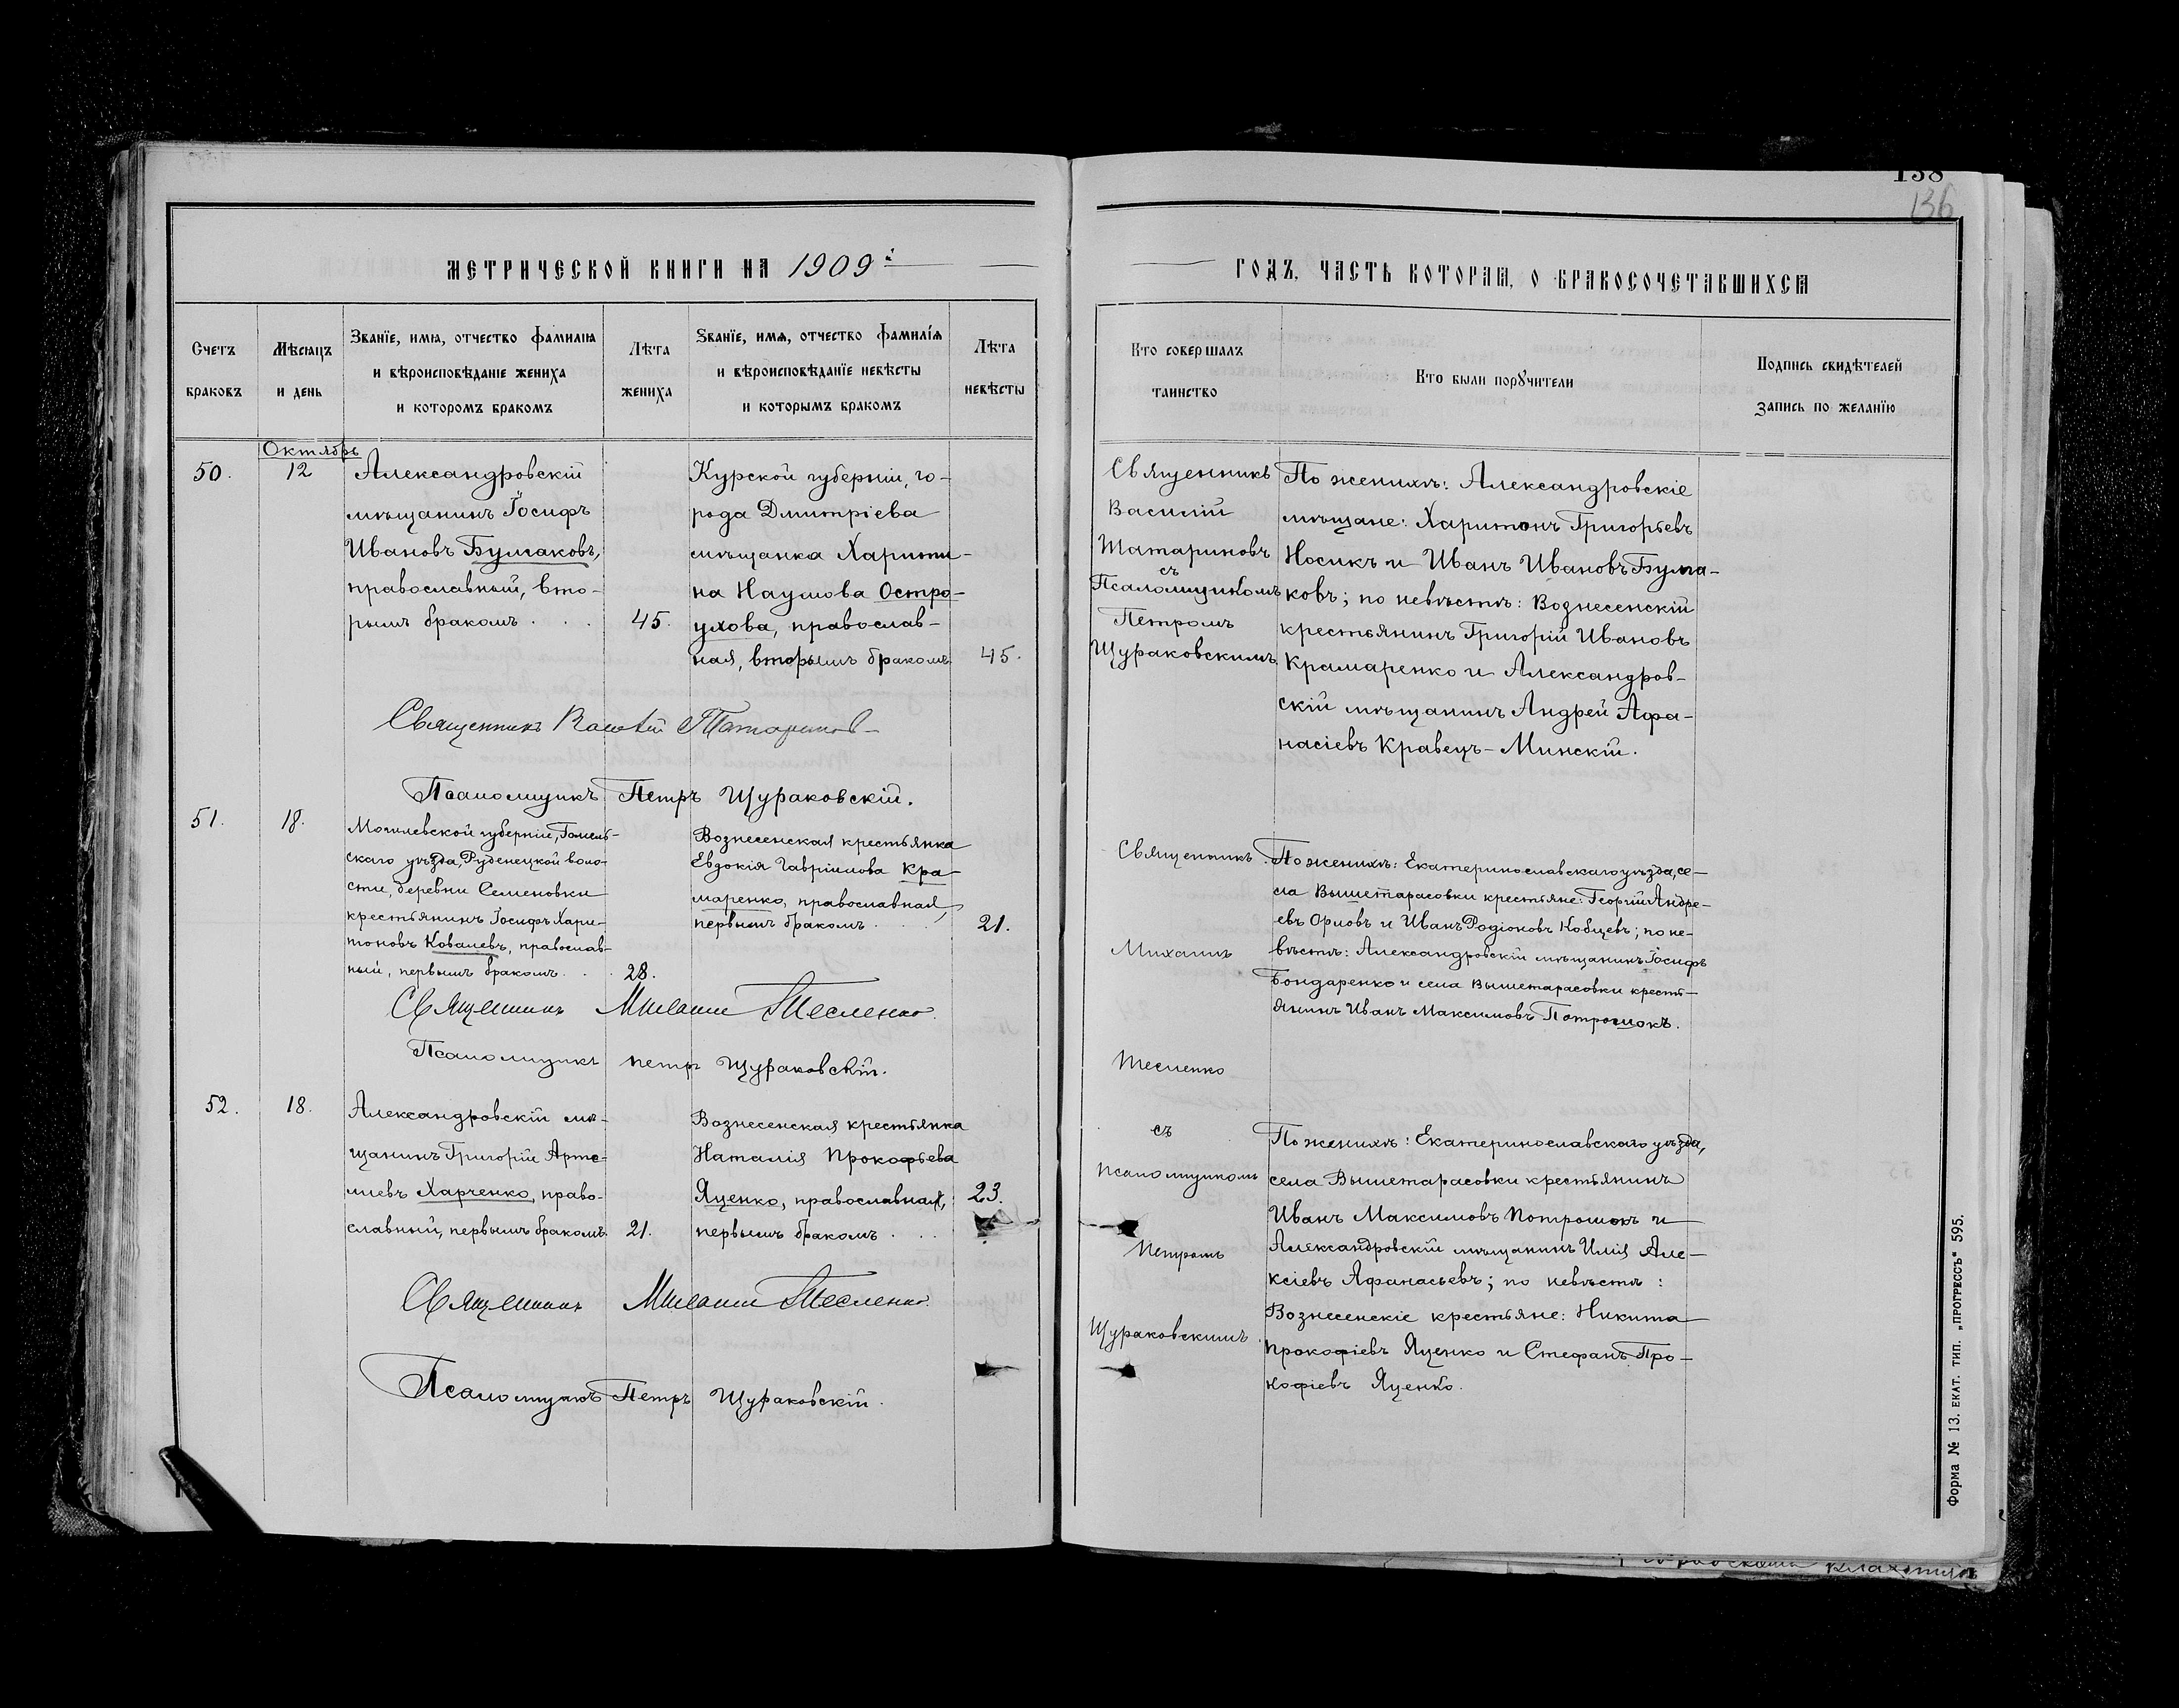 138
136
МЕТРИЧЕСКОЙ КНИГИ НА 1909й
ГОДЪ, ЧАСТЬ ВТОРАЯ, О БРАКОСОЧЕТАВШИХСЯ
Счетъ
браковъ
Мѣсяцъ
и день
Званїе, имя, отчество фамилїя
и вѣроисповѣданїе жениха
и которомъ бракомъ
Лѣта
жениха
Званїе, имя, отчество фамилїя
и вѣроисповѣданїе невѣсты
и которымъ бракомъ
Лѣта
невѣсты
Кто совершалъ
таинство
Кто были поручители
Подпись свидѣтелей
запись по желанїю
Октябрь
50.
12
Александровскій
мѣщанинъ Іосифъ
Ивановъ Булгаковъ,
православный, вто-
рымъ бракомъ . . .
45.
Курской губерніи, го-
рода Дмитріева
мѣщанка Харити-
на Наумова Остро-
ухова, православ-
ная, вторымъ бракомъ
45.
Священникъ Василій Татариновъ
Псаломщикъ Петръ Щураковскій.
Священникъ
Василій
Татариновъ
съ
Псаломщикомъ
Петромъ
Щураковскимъ
По женихѣ: Александровскіе
мѣщане: Харитонъ Григорьевъ
Носикъ и Иванъ Ивановъ Булга-
ковъ; по невѣстѣ: Вознесенскій
крестьянинъ Григорій Ивановъ
Крамаренко и Александров-
скій мѣщанинъ Андрей Афа-
насіевъ Кравецъ-Минскій.
51.
18.
Могилевской губерніи, Гомель-
скаго уѣзда, Руденецкой воло-
сти, деревни Семеновки
крестьянинъ Іосифъ Хари-
тоновъ Ковалевъ, православ-
ный, первымъ бракомъ . . .
28.
Вознесенская крестьянка
Евдокія Гавріилова Кра-
маренко, православная,
первымъ бракомъ . . .
21.
Священникъ Михаилъ Тесленко.
Псаломщикъ Петръ Щураковскій.
Священникъ
Михаилъ
Тесленко
съ
Псаломщикомъ
Петромъ
Щураковскимъ
По женихѣ: Екатеринославскаго уѣзда, се-
ла Вышетарасовки крестьяне: Георгій Андре-
евъ Орловъ и Иванъ Родіоновъ Кобцевъ; по не-
вѣстѣ: Александровскій мѣщанинъ Іосифъ
Бондаренко и села Вышетарасовки кресть-
янинъ Иванъ Максимовъ Потрошокъ.
52.
18.
Александровскій мѣ-
щанинъ Григорій Арте-
миевъ Харченко, право-
славный, первымъ бракомъ.
21.
Вознесенская крестьянка
Наталія Прокофьева
Яценко, православная,
первымъ бракомъ . . .
23.
Священникъ Михаилъ Тесленко.
Псаломщикъ Петръ Щураковскій.
По женихѣ: Екатеринославскаго уѣзда,
села Вышетарасовки крестьянинъ
Иванъ Максимовъ Потрошокъ и
Александровскій мѣщанинъ Илія Але-
ксіевъ Афанасьевъ; по невѣстѣ:
Вознесенскіе крестьяне: Никита
Прокофіевъ Яценко и Стефанъ Про-
кофіевъ Яценко.
Форма № 13. ЕКАТ. ТИП. „ПРОГРЕССЪ“ 595.